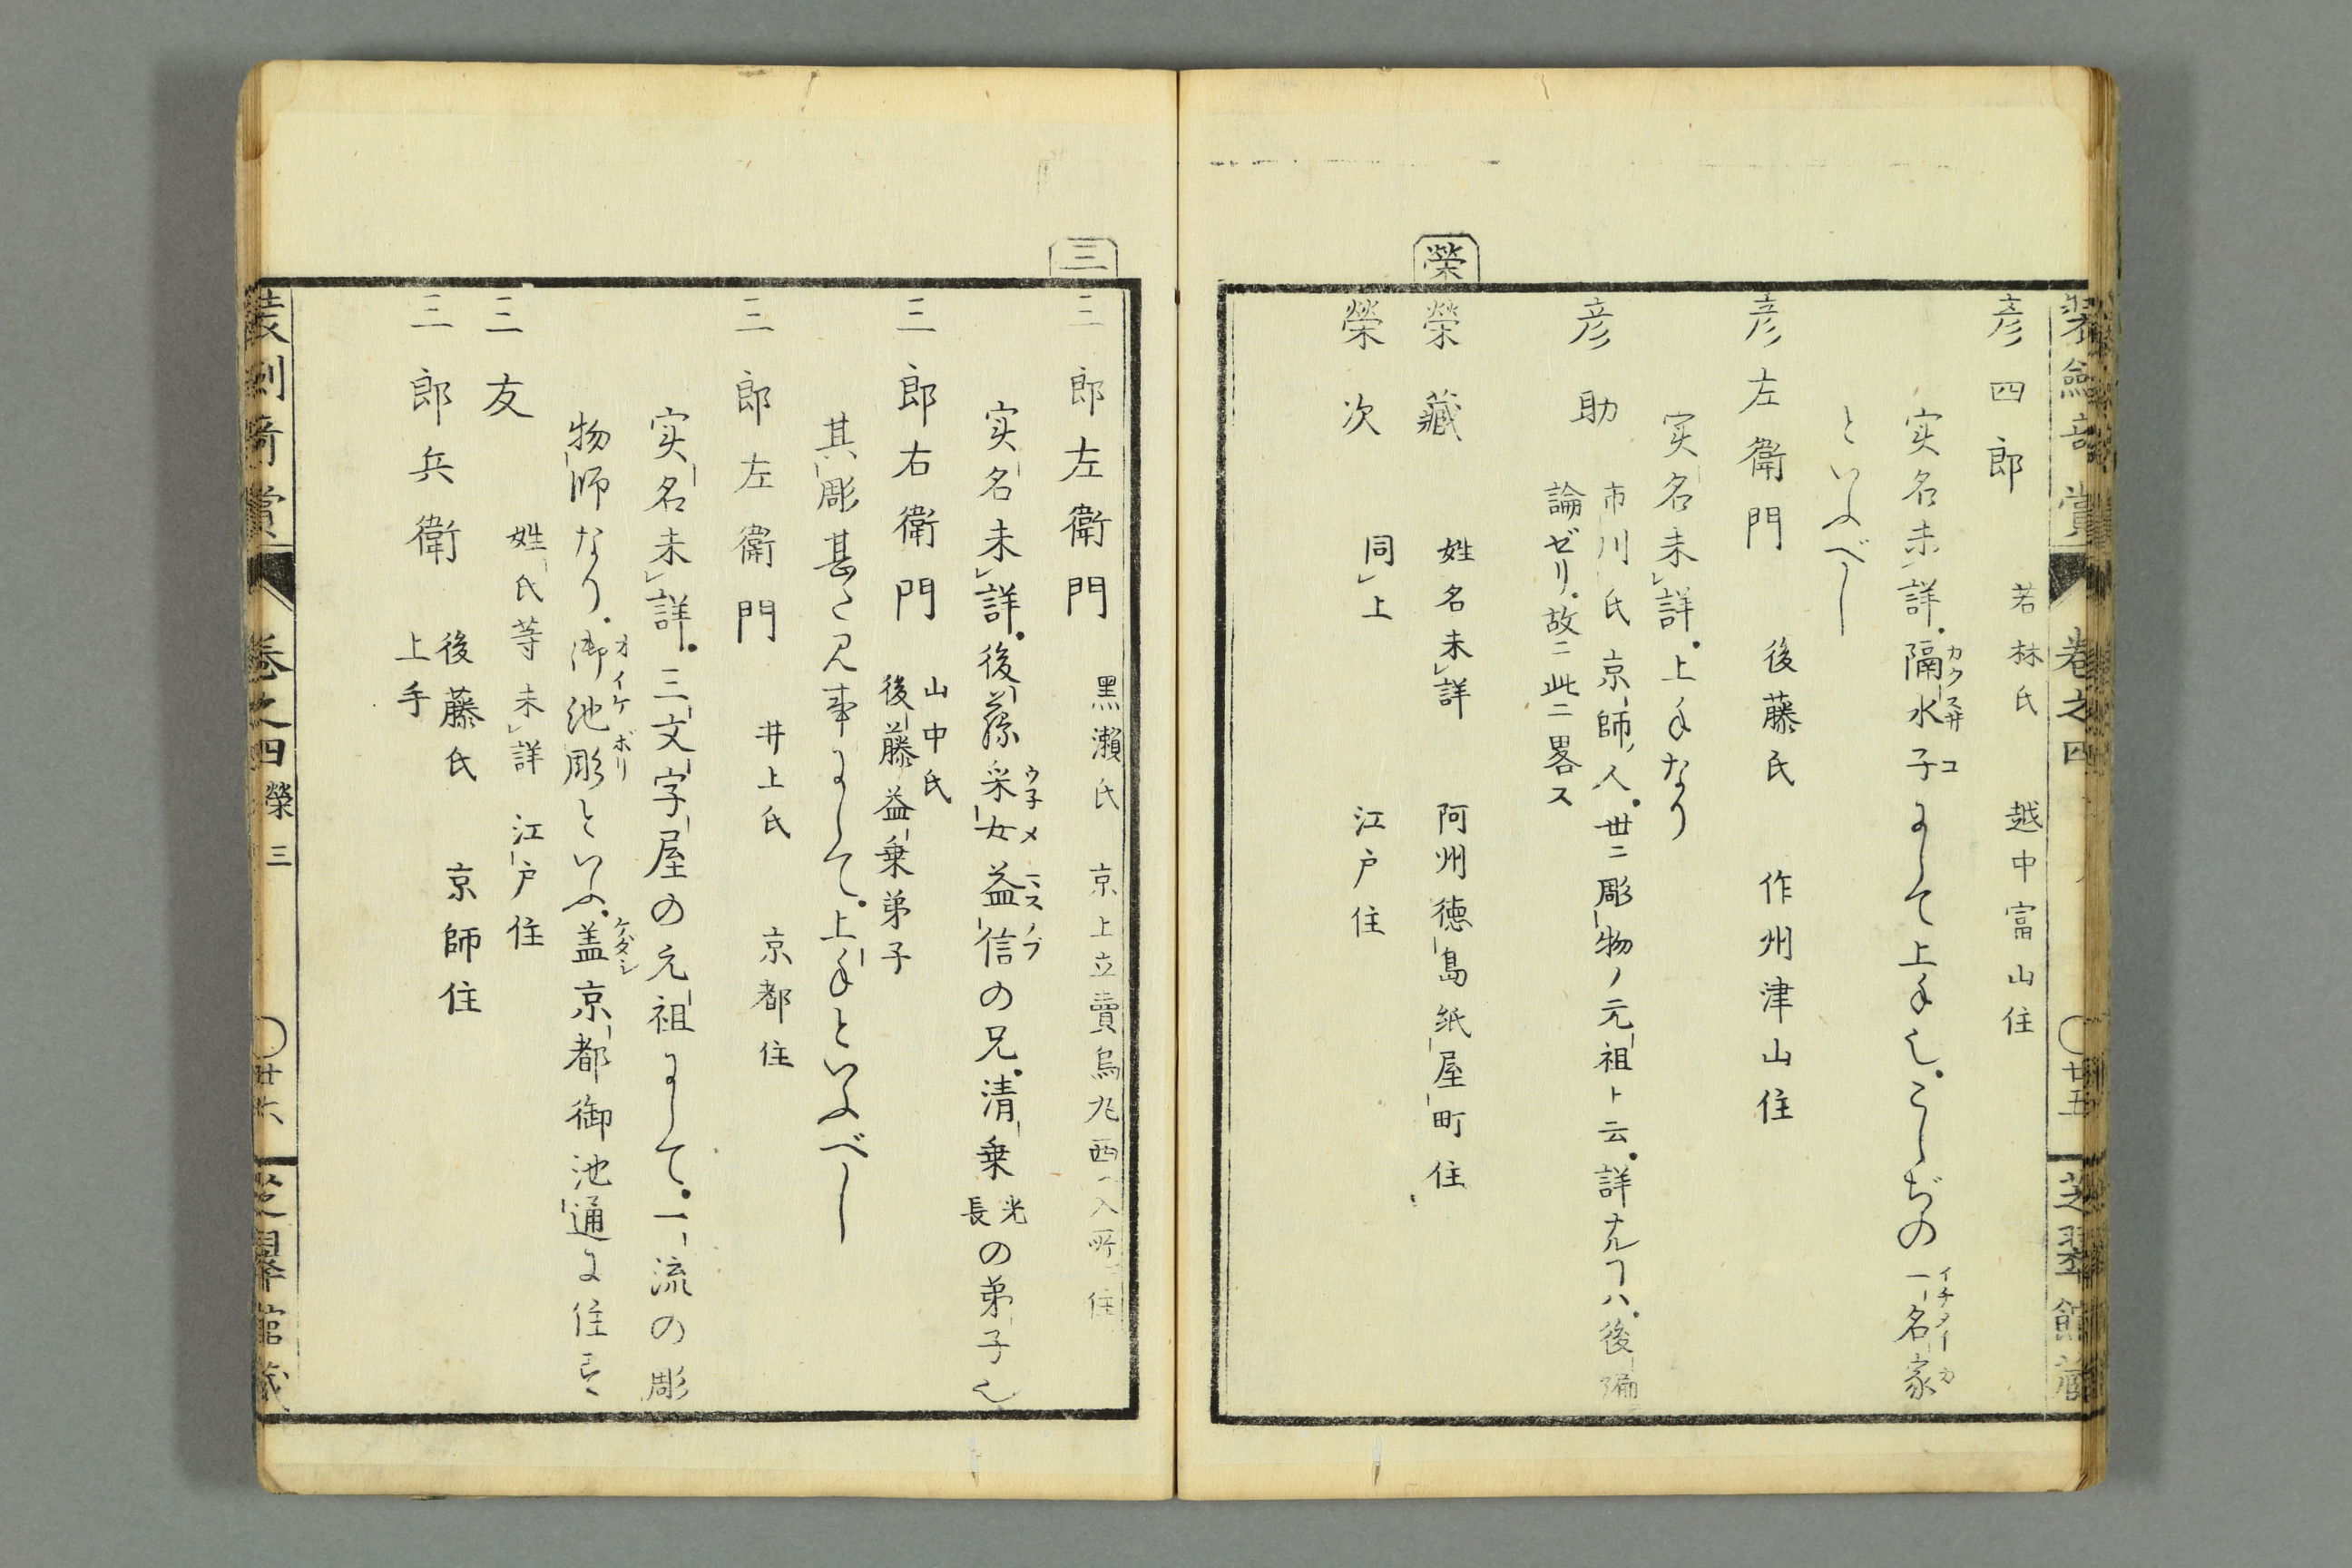 装劔竒賞 巻之四 〇廿五 芝翠館蔵
彦四郎 若林氏 越中富山住
実名未詳。隔水子にして上手也。こしぢの一名家
カクス井コ イチメイカ
といふべし
彦左衛門 後藤氏 作州津山住
実名未詳。上手なり
彦助 市川氏京師ノ人。世ニ彫物ノ元祖ト云。詳ナルヿハ。後編
論ゼリ。故ニ此ニ畧ス
榮
榮藏 姓名未詳 阿州徳島紙屋町住
榮次 同上 江戸住
三
三郎左衛門 黒瀬氏 京上立賣烏丸西入所住
実名未詳。後藤采女益信の兄。清乗光長の弟子也
ウネメ マスノブ
三郎右衛門 山中氏
後藤益乗弟子
其彫甚た見事にして。上手といふべし
三郎左衛門 井上氏 京都住
実名未詳。三文字屋の元祖にして。一流の彫
物師なり。御池彫といふ。盖京都御池通に住す
オイケボリ ケダシ
三友 姓氏等未詳 江戸住
三郎兵衛 後藤氏 京師住
上手
装劔竒賞 巻之四 榮 三 〇廿六 芝翠館蔵